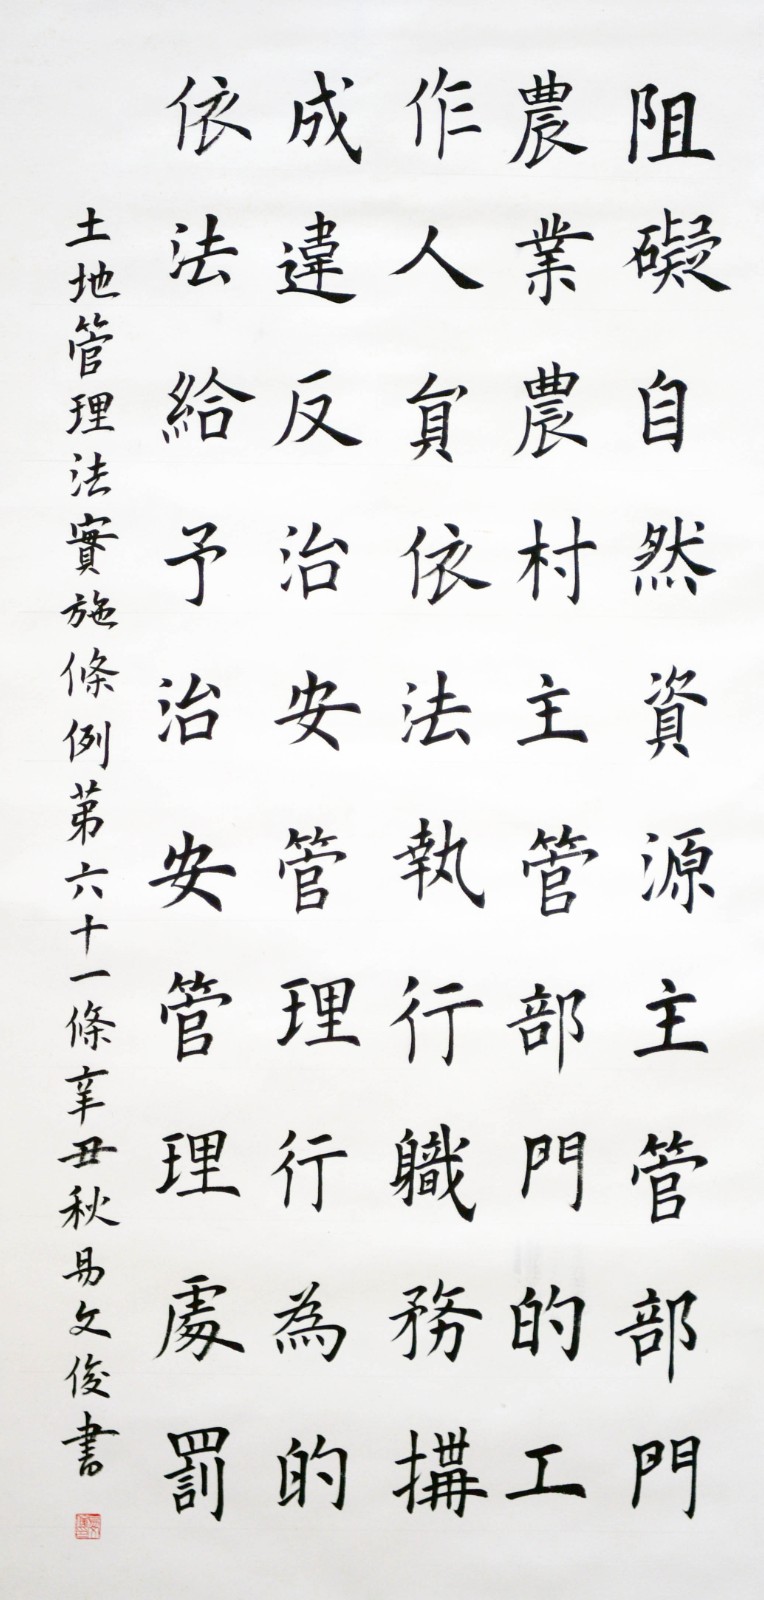 阻礙自然資源主管部門
農業農村主管部門的工
作人員依法執行職務搆
成違反治安管理行為的
依法給予治安管理處罰
土地管理法實施條例第六十一條辛丑秋易文俊書